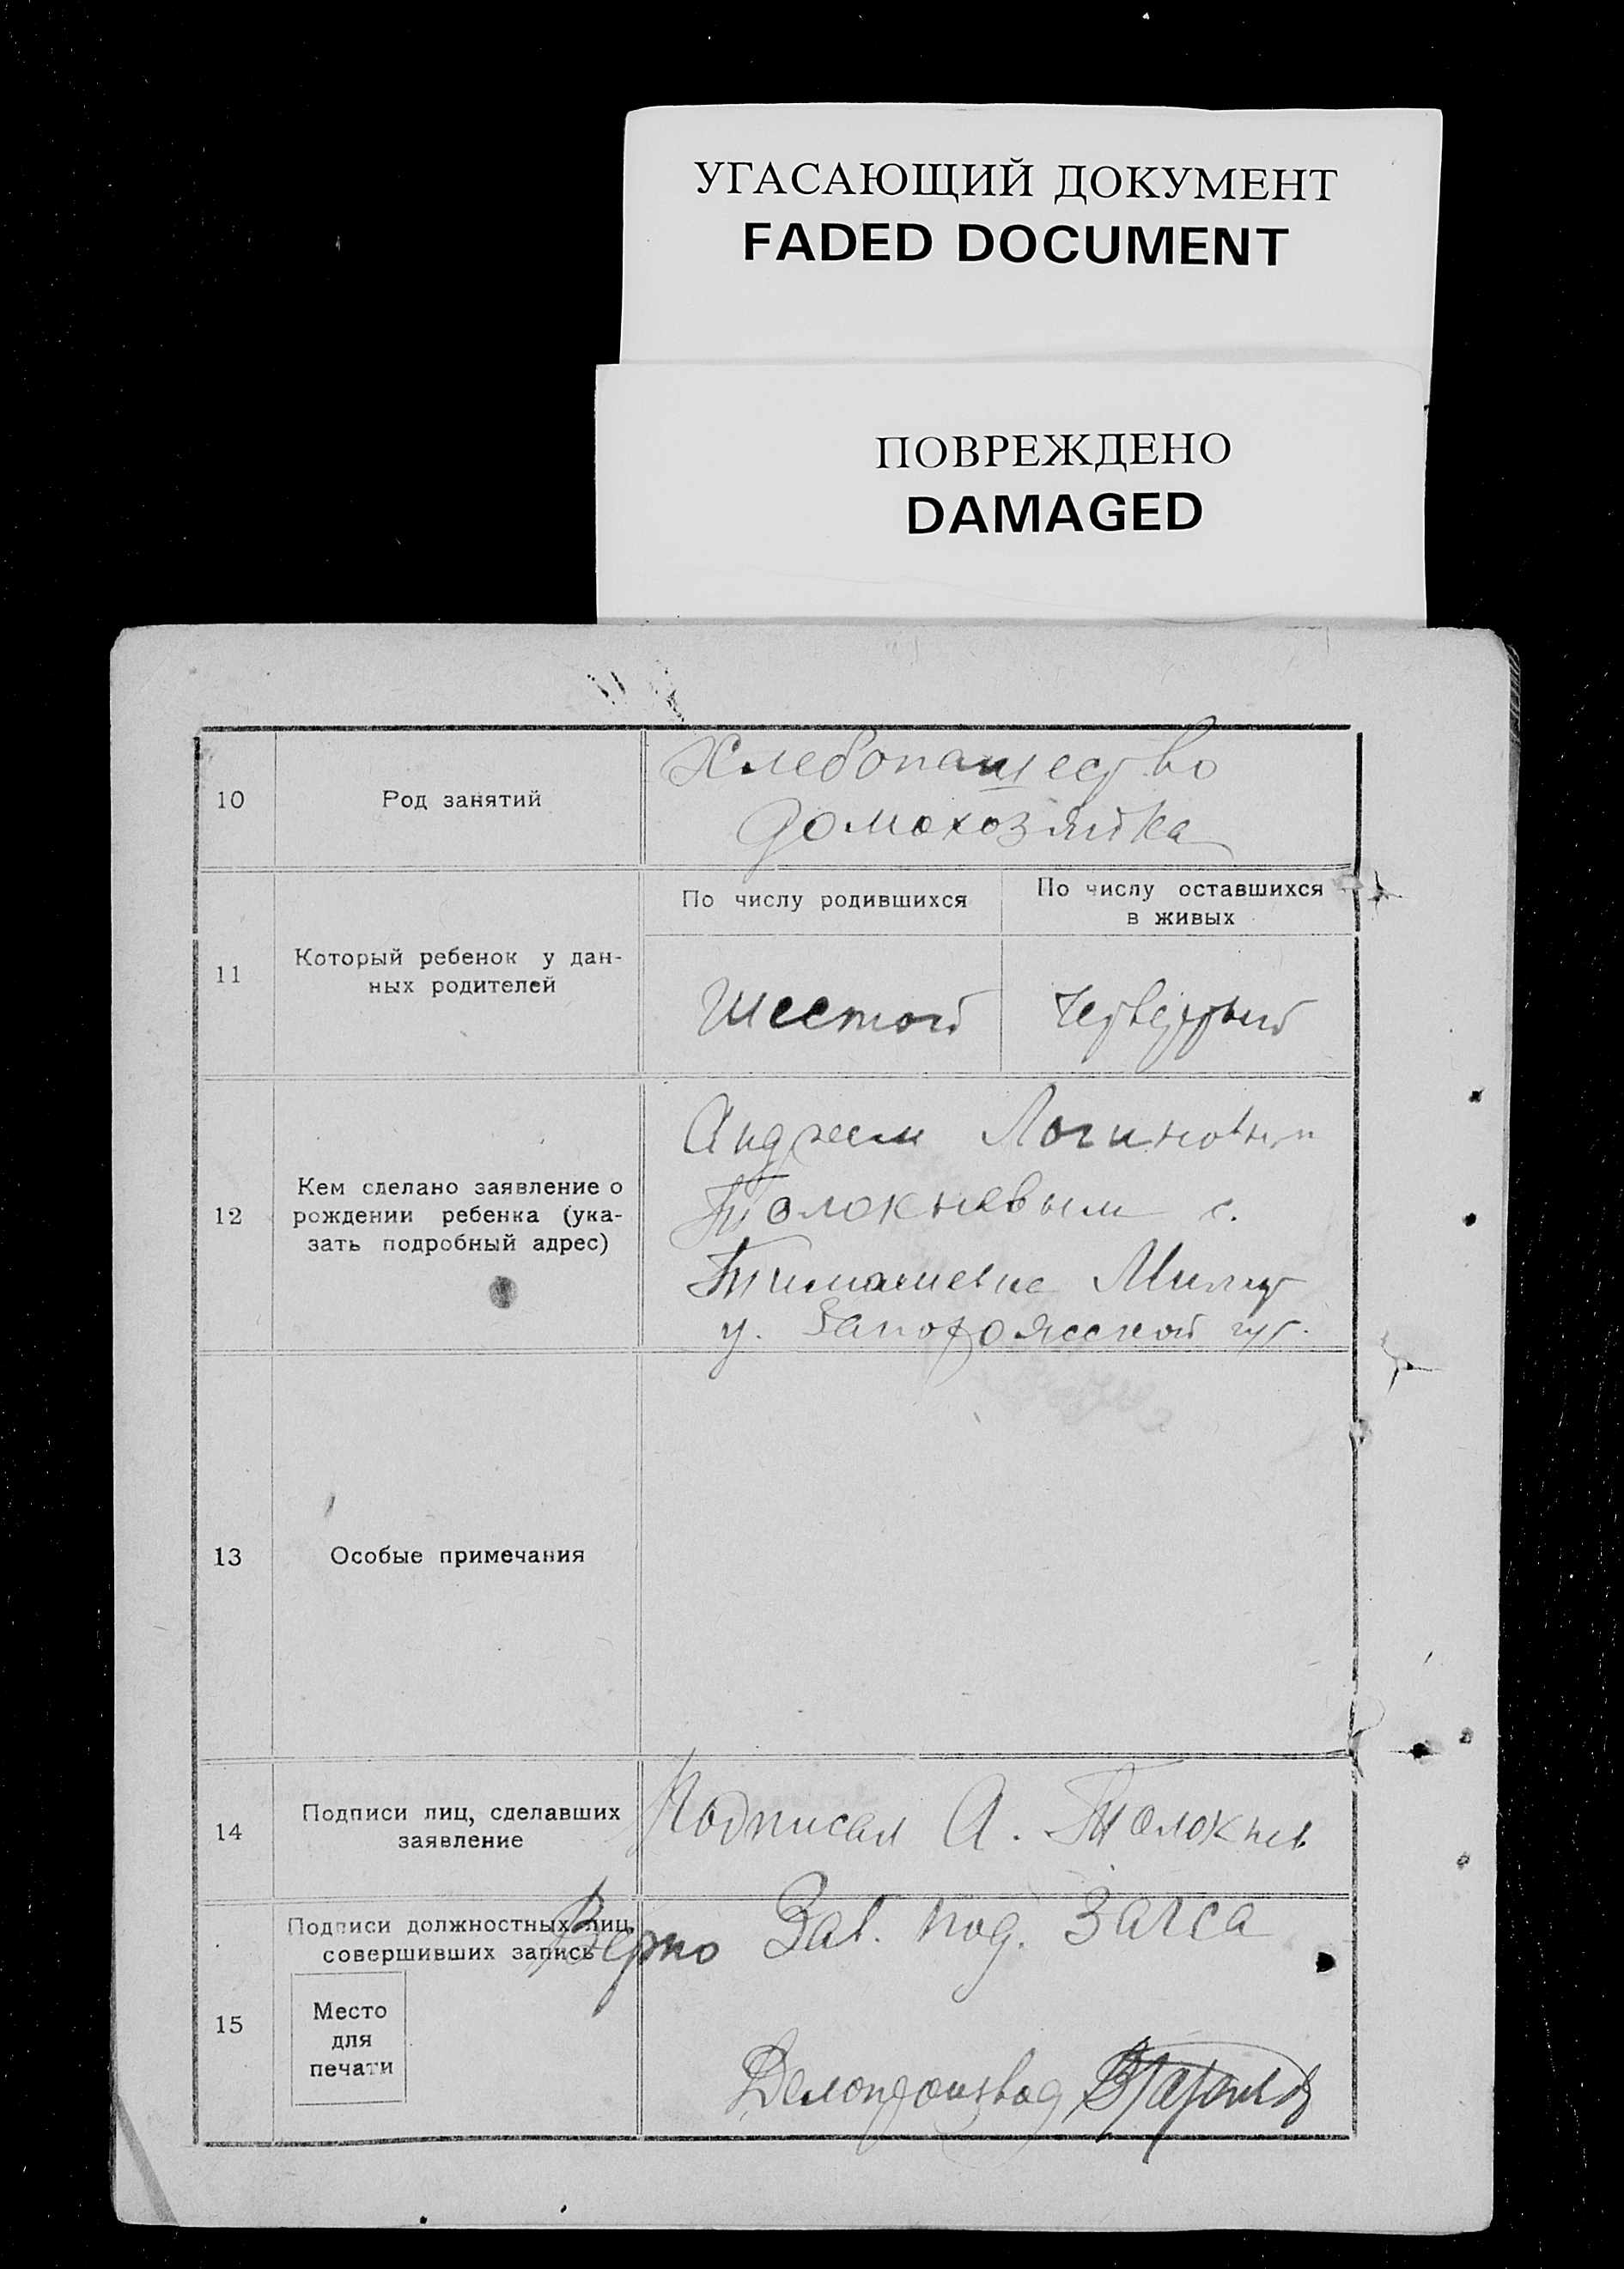 УГАСАЮЩИЙ ДОКУМЕНТ
FADED DOCUMENT
ПОВРЕЖДЕНО
DAMAGED
10
Род занятий
Хлебопашество
домохозяйка
11
Который ребенок у дан-
ных родителей
По числу родившихся
По числу оставшихся
в живых
Шестой
Четвертый
12
Кем сделано заявление о
рождении ребенка (ука-
зать подробный адрес)
Андреем Логиновым
Толокневым с.
Тимошевка Милит
у. Запорожсской губ.
13
Особые примечания
14
Подписи лиц, сделавших
заявление
Подписал А. Толокнев
15
Подписи должностных лиц,
совершивших запись
Место
для
печати
Верно Зав. под. Загса
Делопроизвод